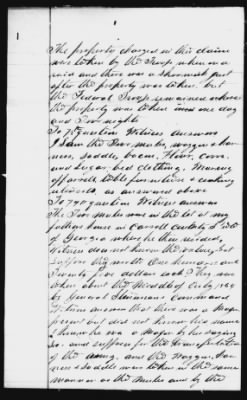 The property charged in this claim
was taken by the Troop when on a
raid and there was a skirmish just
after the property was taken, but
the Federal Troops remained where
the property was taken one day
and Two nights
To 7th question Witness answers
I saw the Two mules, wagon &
ness, saddle, bacon, Flour, corn,
and sugar, bed clothing, Wearing
apparel, table furniture & cooking
utensils, as answered above
To question Witness answers
The Two mules was in the lot at my
fathers house in Carroll County State
of Georgia where he then resided,
Witness does not know the value, but
suppose the worth One hundred and
Twenty five dollars each They was
taken about the Middle of July 1864
by General Stonemans Command
Witness answers that there was a Major
present but did not know his name
knew he was a Major by his saying
so. and suppose for the transportation
of the army, and the Waggon, har-
ness & saddle was taken in the same
manner as the mules and by the